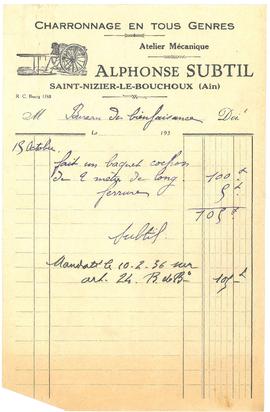 CHARRONNAGE EN TOUS GENRES
Atelier Mécanique
ALPHONSE SUBTIL
SAINT-NIZIER-LE-BOUCHOUX (Ain)
R. C. Bourg 1768
M Bureau de bienfaisance Doit
Le 193
15 Octobre
fait un baquet cochon
de 2 metre de long. 100
ferrure 5
105
Subtil
Mandaté le 10-2-36 sur
art. 24. B. de B 105